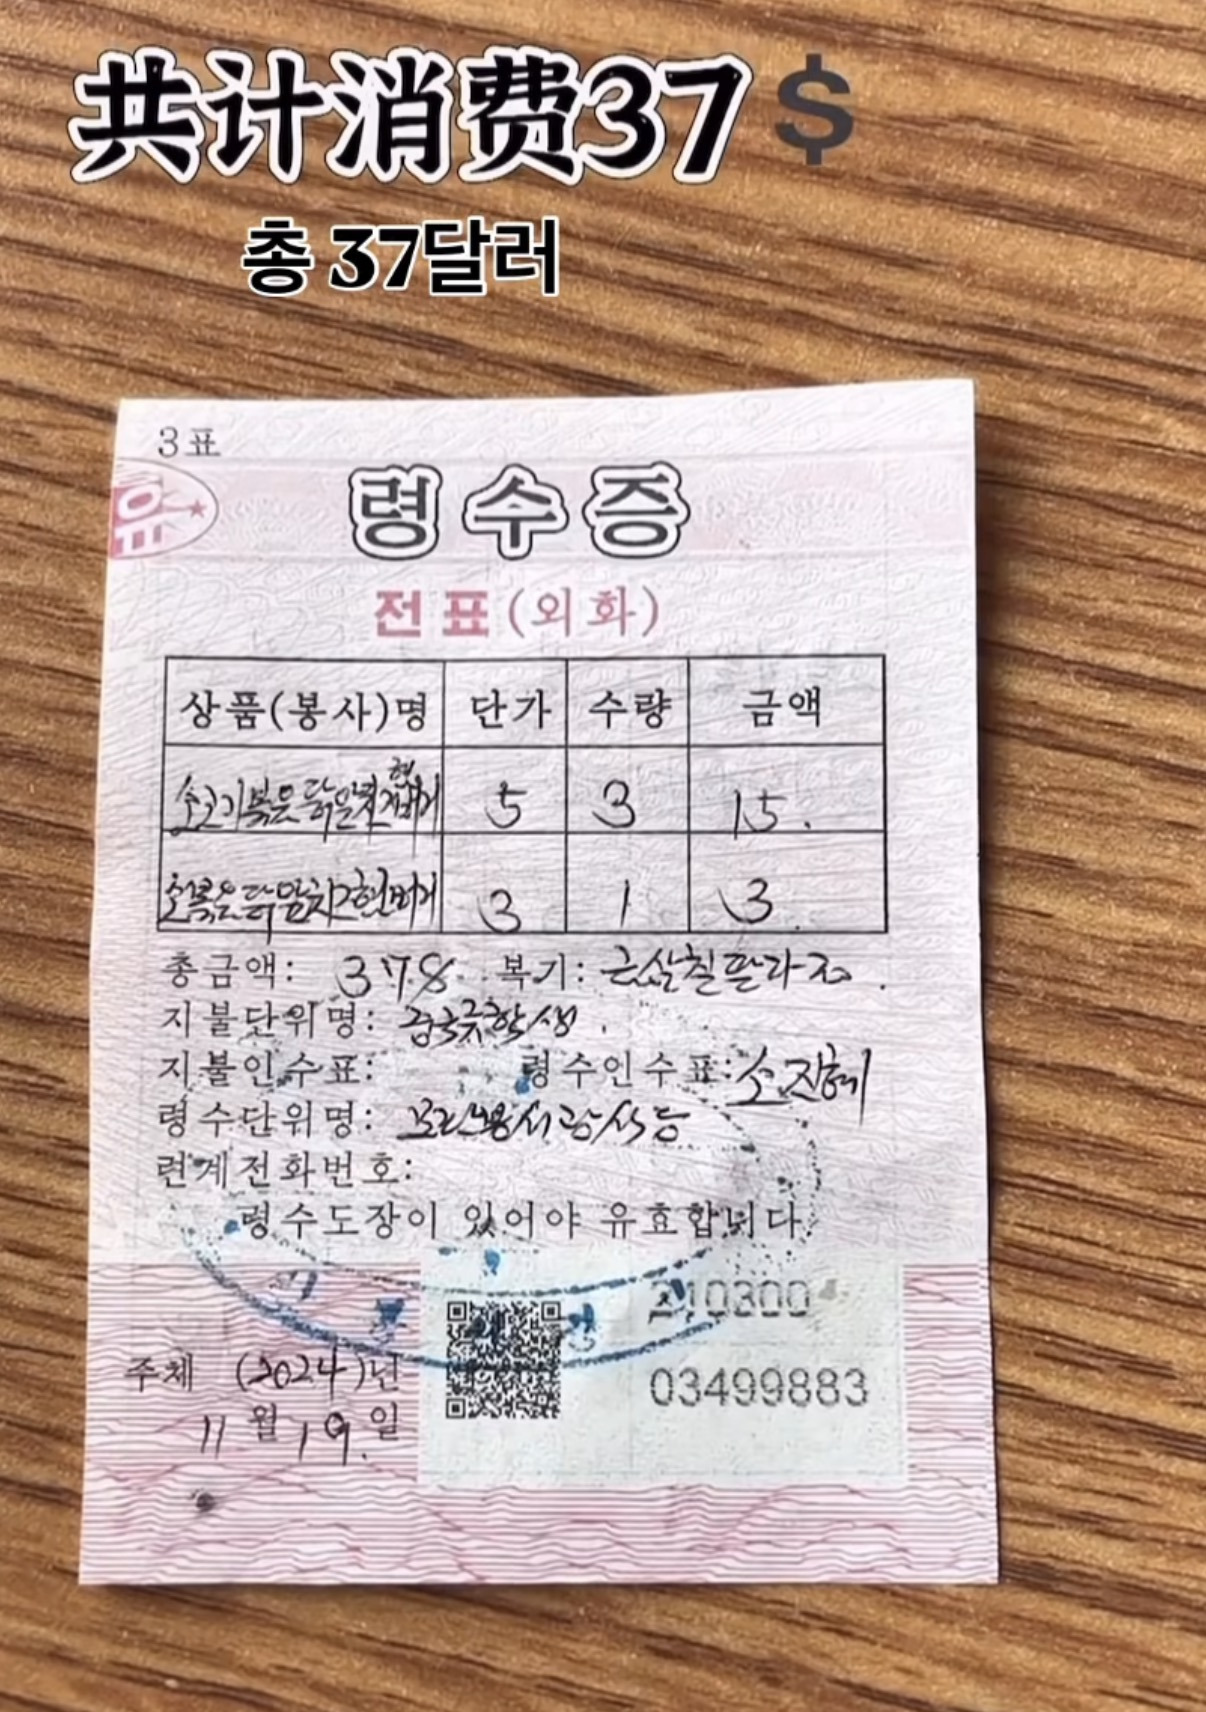 共计消费37$
총 37달러
3표
유
령수증
전표(외화)
상품(봉사)명 단가 수량 금액
5 3 15.
3 1 3
총금액: 37$ 복기:
지불단위명:
지불인수표: 령수인수표:
령수단위명:
련계전화번호:
령수도장이 있어야 유효합니다.
210300
03499883
주체 (2024)년
11월 19.일